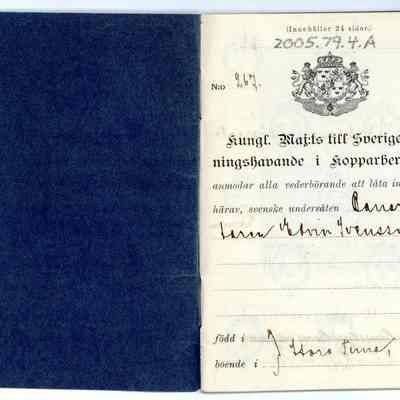 (Innehåller 24 sidor.)
2005.79.4.A
N:o 267.
Kungl. Maj:ts till Sverige
ningshavande i Kopparber
anmodar alla vederbörande att låta in
härav, svenske undersåten
Edvin Svensso
född i
boende i Stora Tuna,